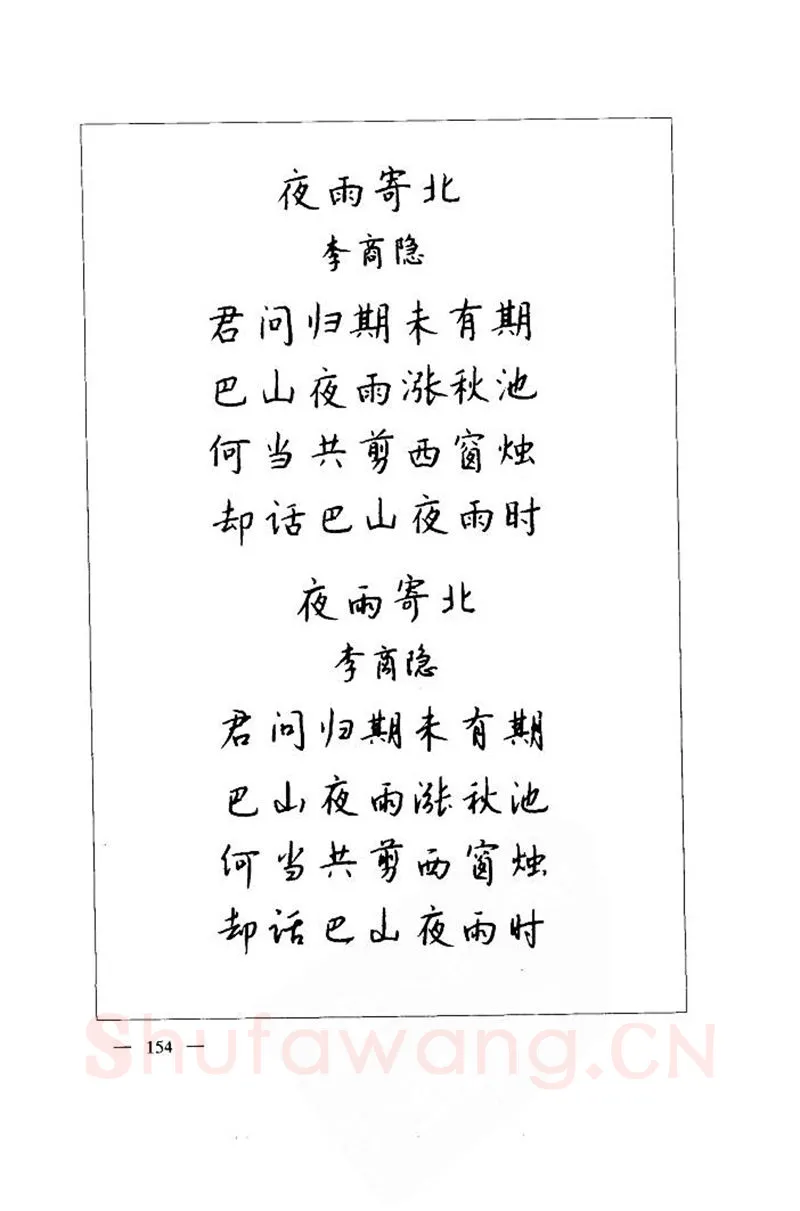 夜雨寄北
李商隐
君问归期未有期
巴山夜雨涨秋池
何当共剪西窗烛
却话巴山夜雨时
夜雨寄北
李商隐
君问归期未有期
巴山夜雨涨秋池
何当共剪西窗烛
却话巴山夜雨时
— 154 —
Shufawang.CN